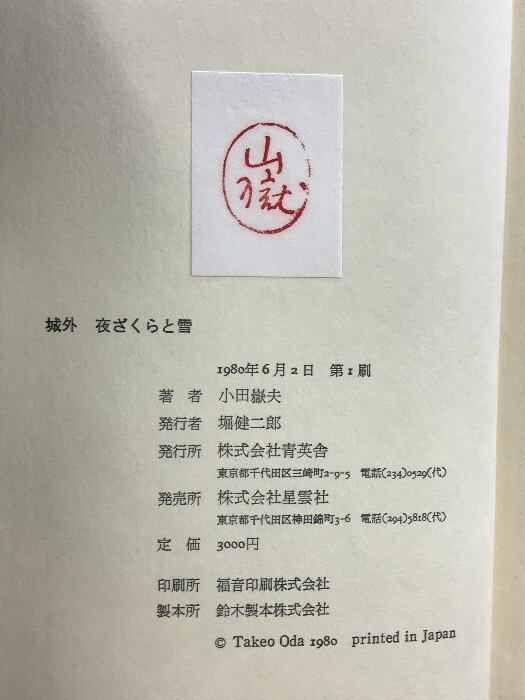 嶽
城外　夜ざくらと雪
1980年6月2日　第1刷
著　者　小田嶽夫
発行者　堀健二郎
発行所　株式会社青英舎
東京都千代田区三崎町2-9-5　電話(234)0529(代)
発売所　株式会社星雲社
東京都千代田区神田錦町3-6　電話(294)5818(代)
定　価　3000円
印刷所　福音印刷株式会社
製本所　鈴木製本株式会社
© Takeo Oda 1980　printed in Japan